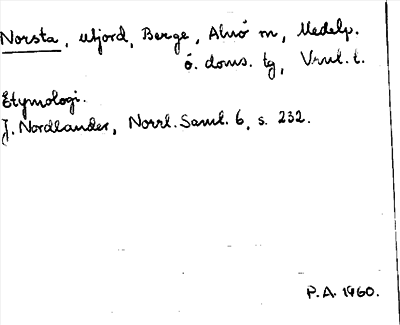 Norsta, utjord, Berge, Alnö sn, Medelp.
ö. doms. tg, Vrul. t.
Etymologi.
J. Nordlander, Norrl. Saml. 6, s. 232.
P.A. 1960.